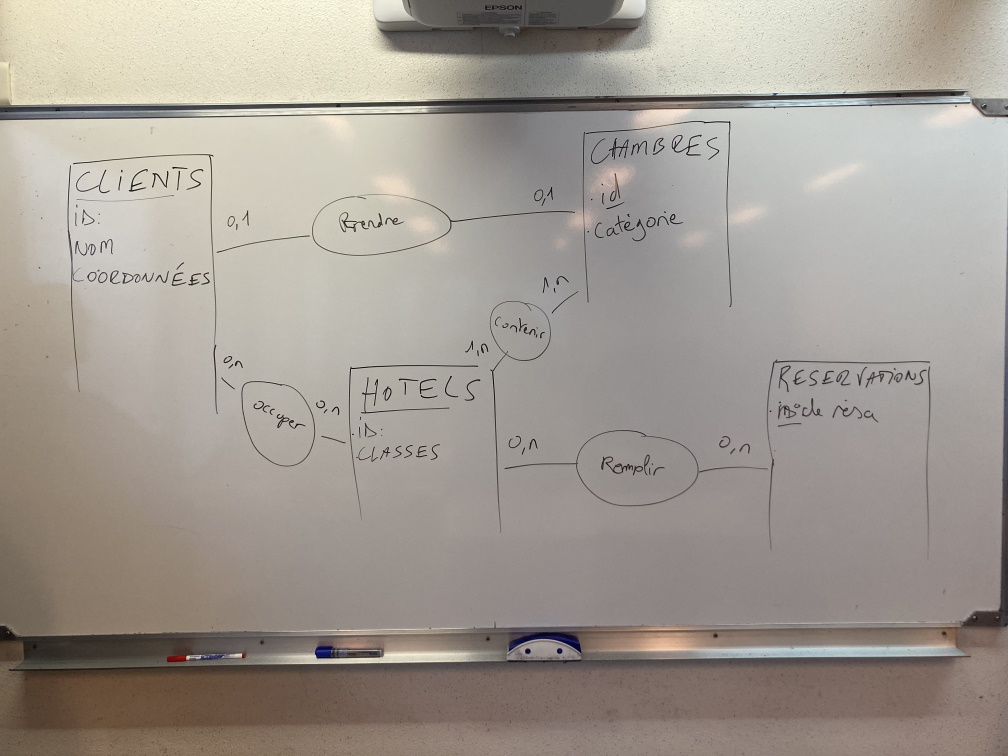 EPSON
CLIENTS
ID:
NOM
COORDONNÉES
0,1
Prendre
0,1
CHAMBRES
. id
. catégorie
1,n
Contenir
1,n
0,n
occuper
0,n
HOTELS
. ID:
. CLASSES
0,n
Remplir
0,n
RESERVATIONS
. de résa